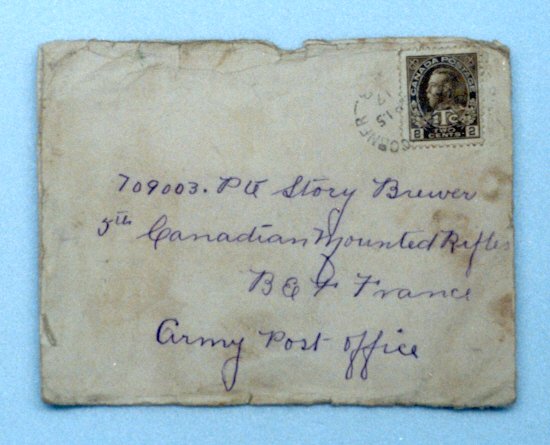 CANADA POSTAGE
1Tc
2 TWO CENTS 2
CORNER
15
17
709003. Pte Story Brewer
5th Canadian Mounted Rifles
B E F France
Army Post Office